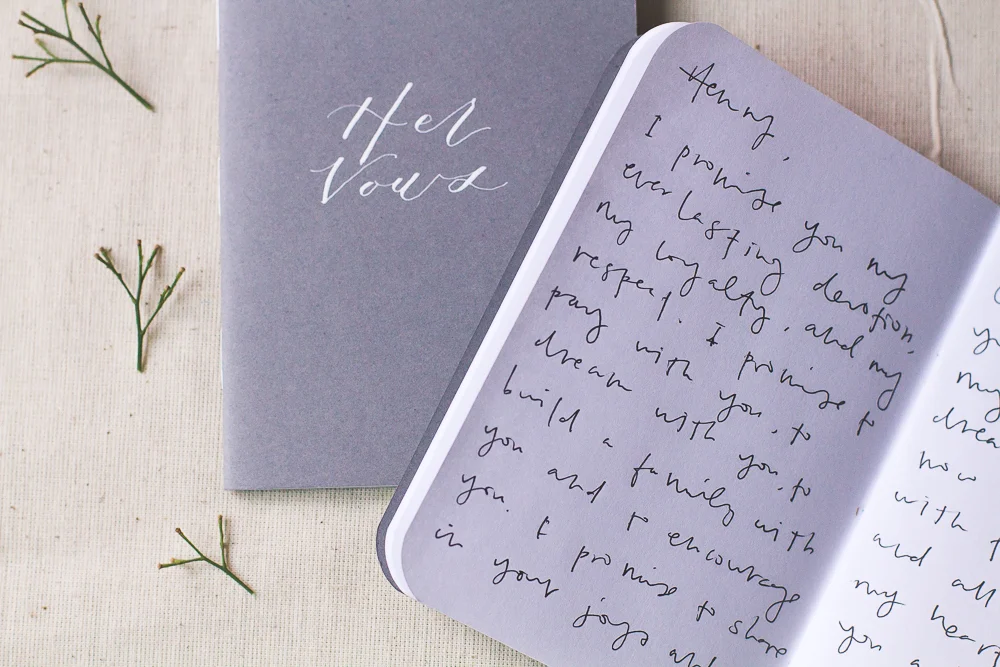 Her
Vows
Henry,
I promise you my
everlasting devotion,
my loyalty, and my
respect. I promise to
pray with you, to
dream with you, to
build a family with
you and to encourage
you. I promise to share
in your joys
my
how
with
and all
my heart
you